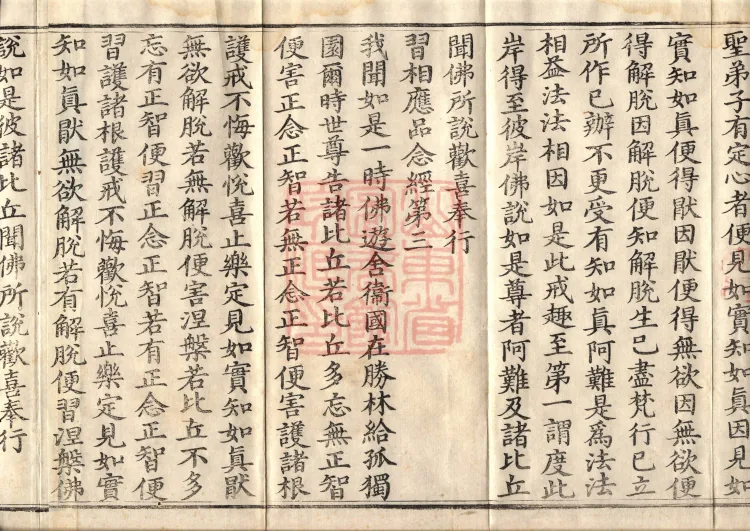 聖弟子有定心者便見如實知如眞因見如
實知如眞便得猒因猒便得無欲因無欲便
得解脫因解脫便知解脫生已盡梵行已立
所作已辦不更受有知如眞阿難是爲法法
相益法法相因如是此戒趣至第一謂度此
岸得至彼岸佛說如是尊者阿難及諸比丘
聞佛所說歡喜奉行
習相應品念經第三
我聞如是一時佛遊舍衞國在勝林給孤獨
園爾時世尊告諸比丘若比丘多忘無正智
便害正念正智若無正念正智便害護諸根
護戒不悔歡悅喜止樂定見如實知如眞猒
無欲解脫若無解脫便害涅槃若比丘不多
忘有正智便習正念正智若有正念正智便
習護諸根護戒不悔歡悅喜止樂定見如實
知如眞猒無欲解脫若有解脫便習涅槃佛
說如是彼諸比丘聞佛所說歡喜奉行